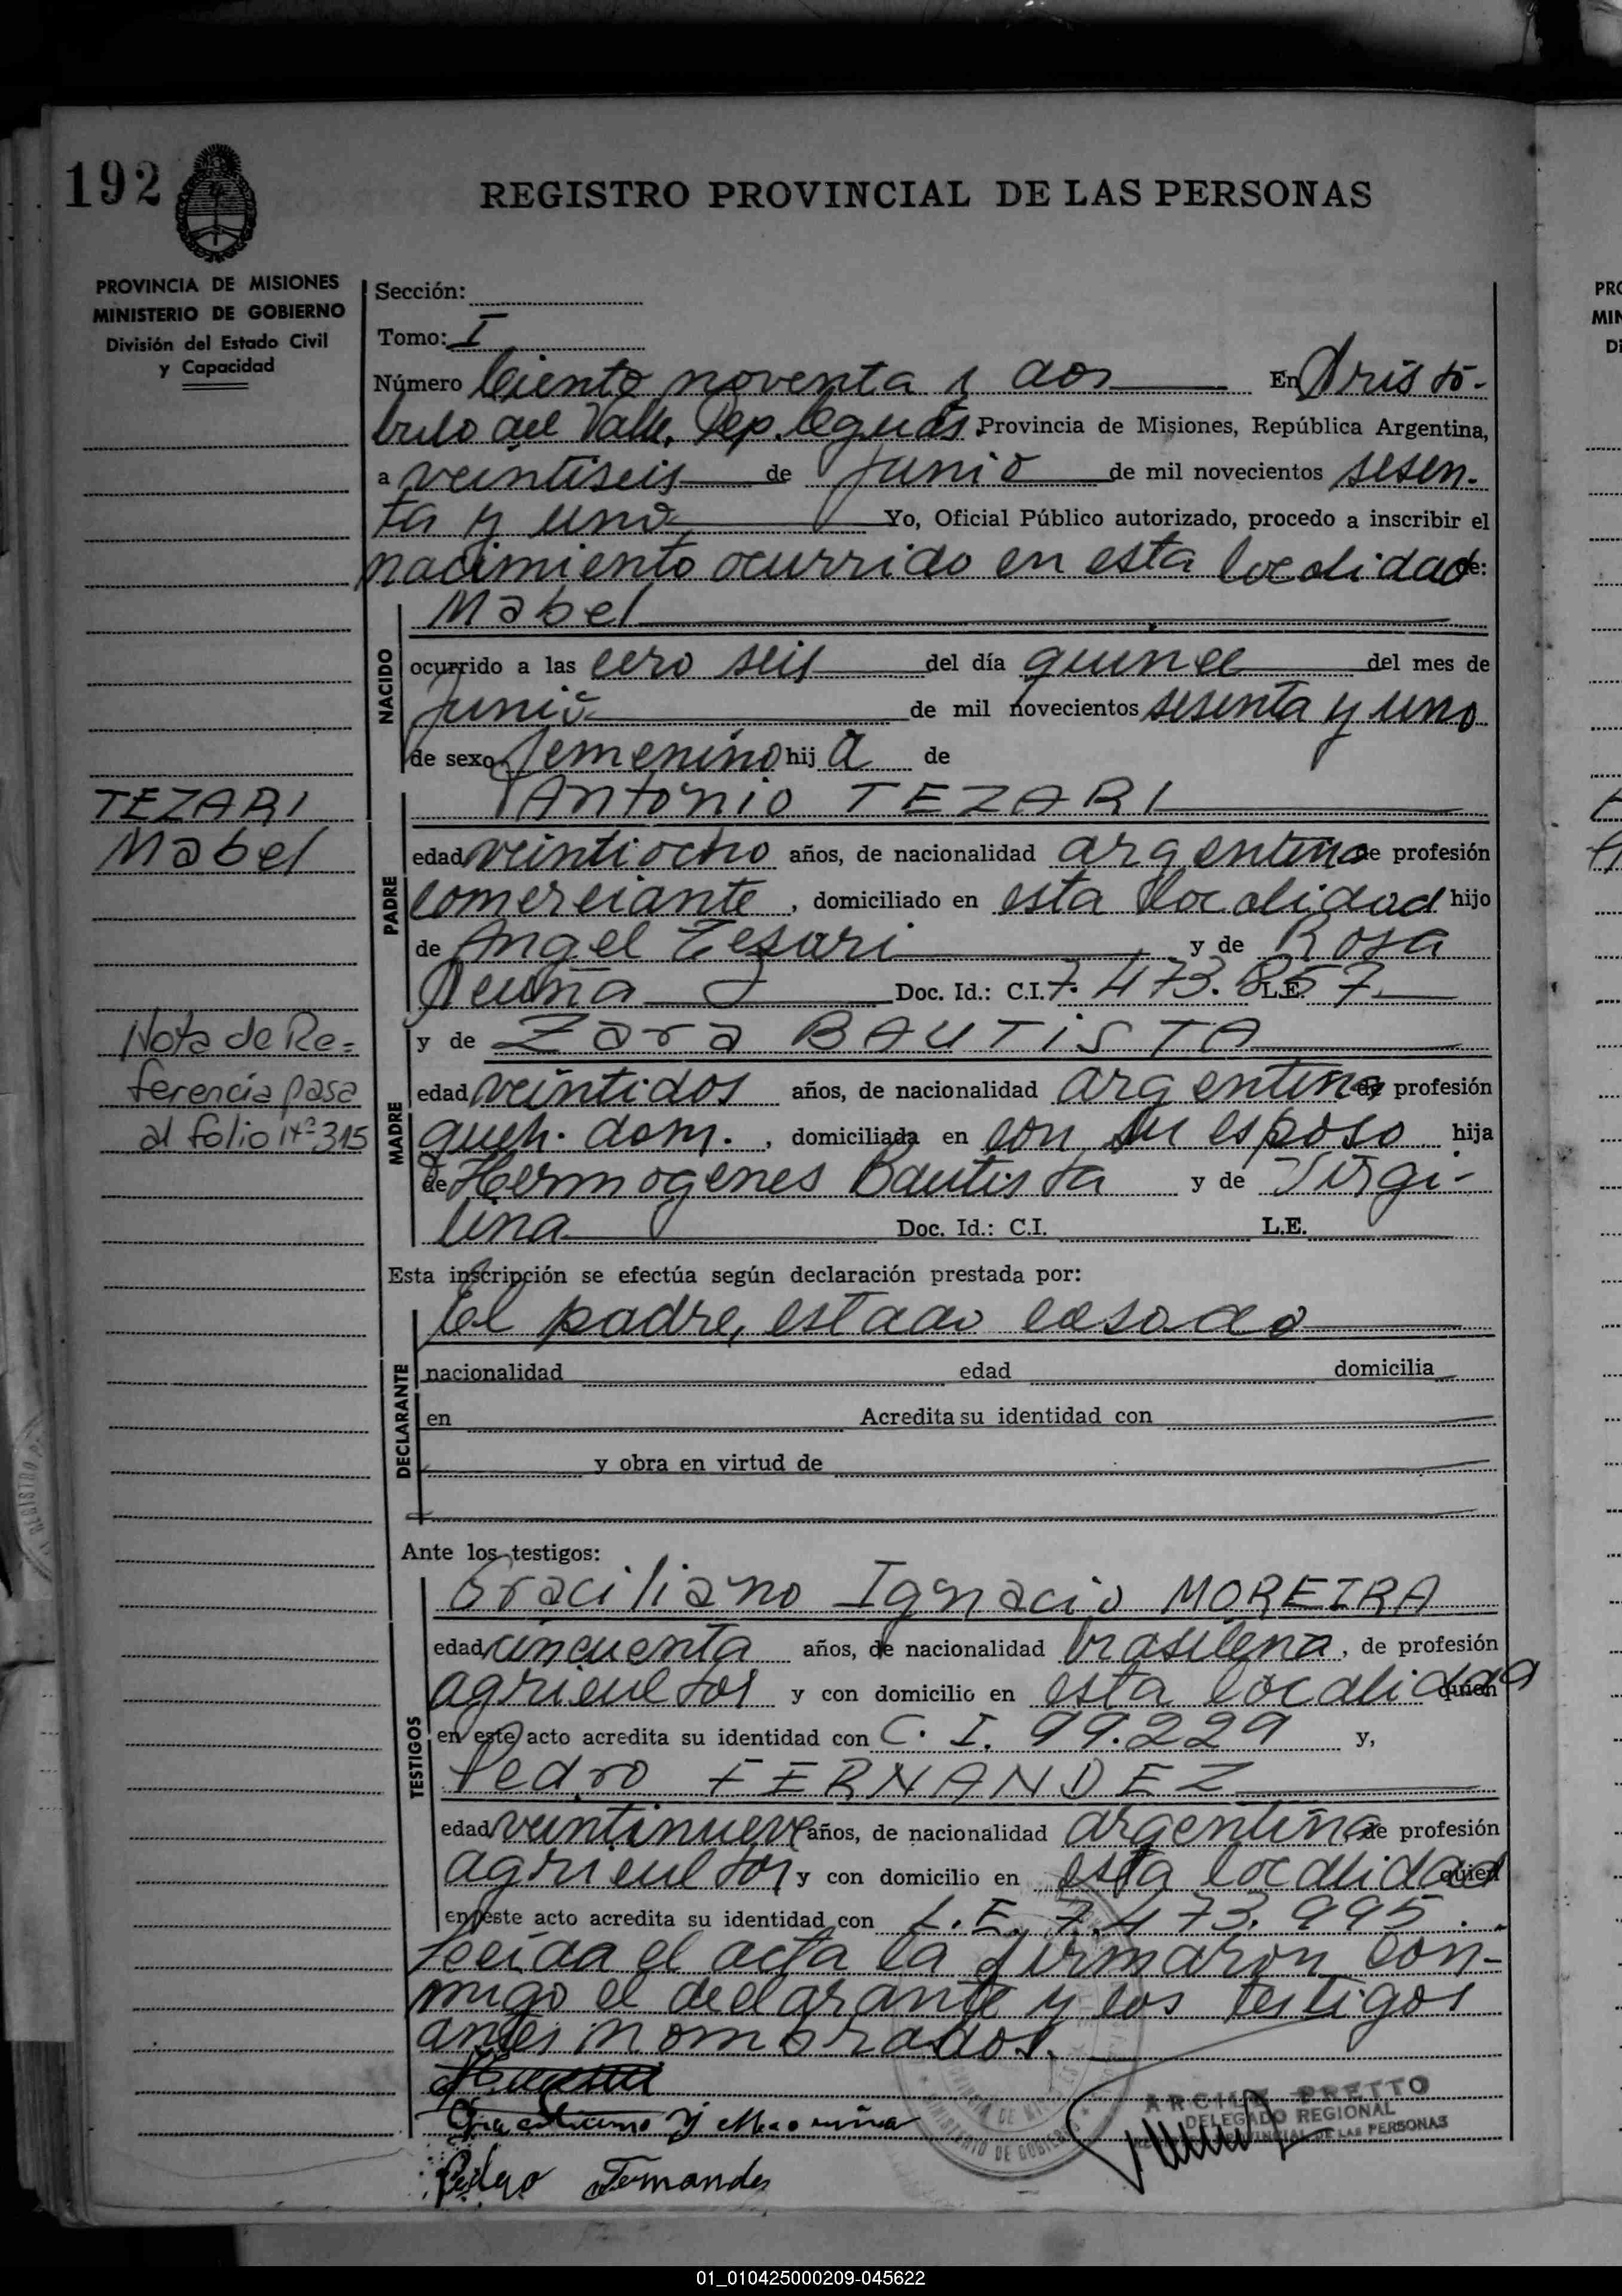 192
REGISTRO PROVINCIAL DE LAS PERSONAS
PROVINCIA DE MISIONES
MINISTERIO DE GOBIERNO
División del Estado Civil
y Capacidad
Sección:
Tomo: I
Número Ciento noventa y dos En Aristó-
bulo del Valle, Dep. Caguás. Provincia de Misiones, República Argentina,
a veintiseis de Junio de mil novecientos sesen-
ta y uno Yo, Oficial Público autorizado, procedo a inscribir el
nacimiento ocurrido en esta localidad de:
NACIDO
Mabel
ocurrido a las cero seis del día quince del mes de
Junio de mil novecientos sesenta y uno
de sexo femenino hij a de
TEZARI
Mabel
PADRE
Antonio TEZARI
edad veintiocho años, de nacionalidad argentina de profesión
comerciante, domiciliado en esta localidad hijo
de Angel Tesari y de Rosa
Doc. Id.: C.I. 7.473.857 L.E.
Nota de Re=
ferencia pasa
al folio nº 315
MADRE
y de Zara BAUTISTA
edad veintidos años, de nacionalidad argentina de profesión
queh. dom., domiciliada en con su esposo hija
de Hermogenes Bautista y de Virgi-
lina Doc. Id.: C.I. L.E.
Esta inscripción se efectúa según declaración prestada por:
DECLARANTE
El padre, estado casado
nacionalidad edad domicilia
en Acredita su identidad con
y obra en virtud de
Ante los testigos:
TESTIGOS
Graciliano Ignacio MOREIRA
edad cincuenta años, de nacionalidad brasilena, de profesión
agricultor y con domicilio en esta localidad quien
en este acto acredita su identidad con C. I. 99.229 y,
Pedro FERNANDEZ
edad veintinueve años, de nacionalidad argentina de profesión
agricultor y con domicilio en esta localidad quien
en este acto acredita su identidad con L.E. 7.473.995.
Leída el acta la firmaron con-
migo el declarante y los testigos
antes nombrados.
Pedro Fernandes
PRETTO
DELEGADO REGIONAL
PROVINCIAL DE LAS PERSONAS
MINISTERIO DE GOBIERNO
01_010425000209-045622